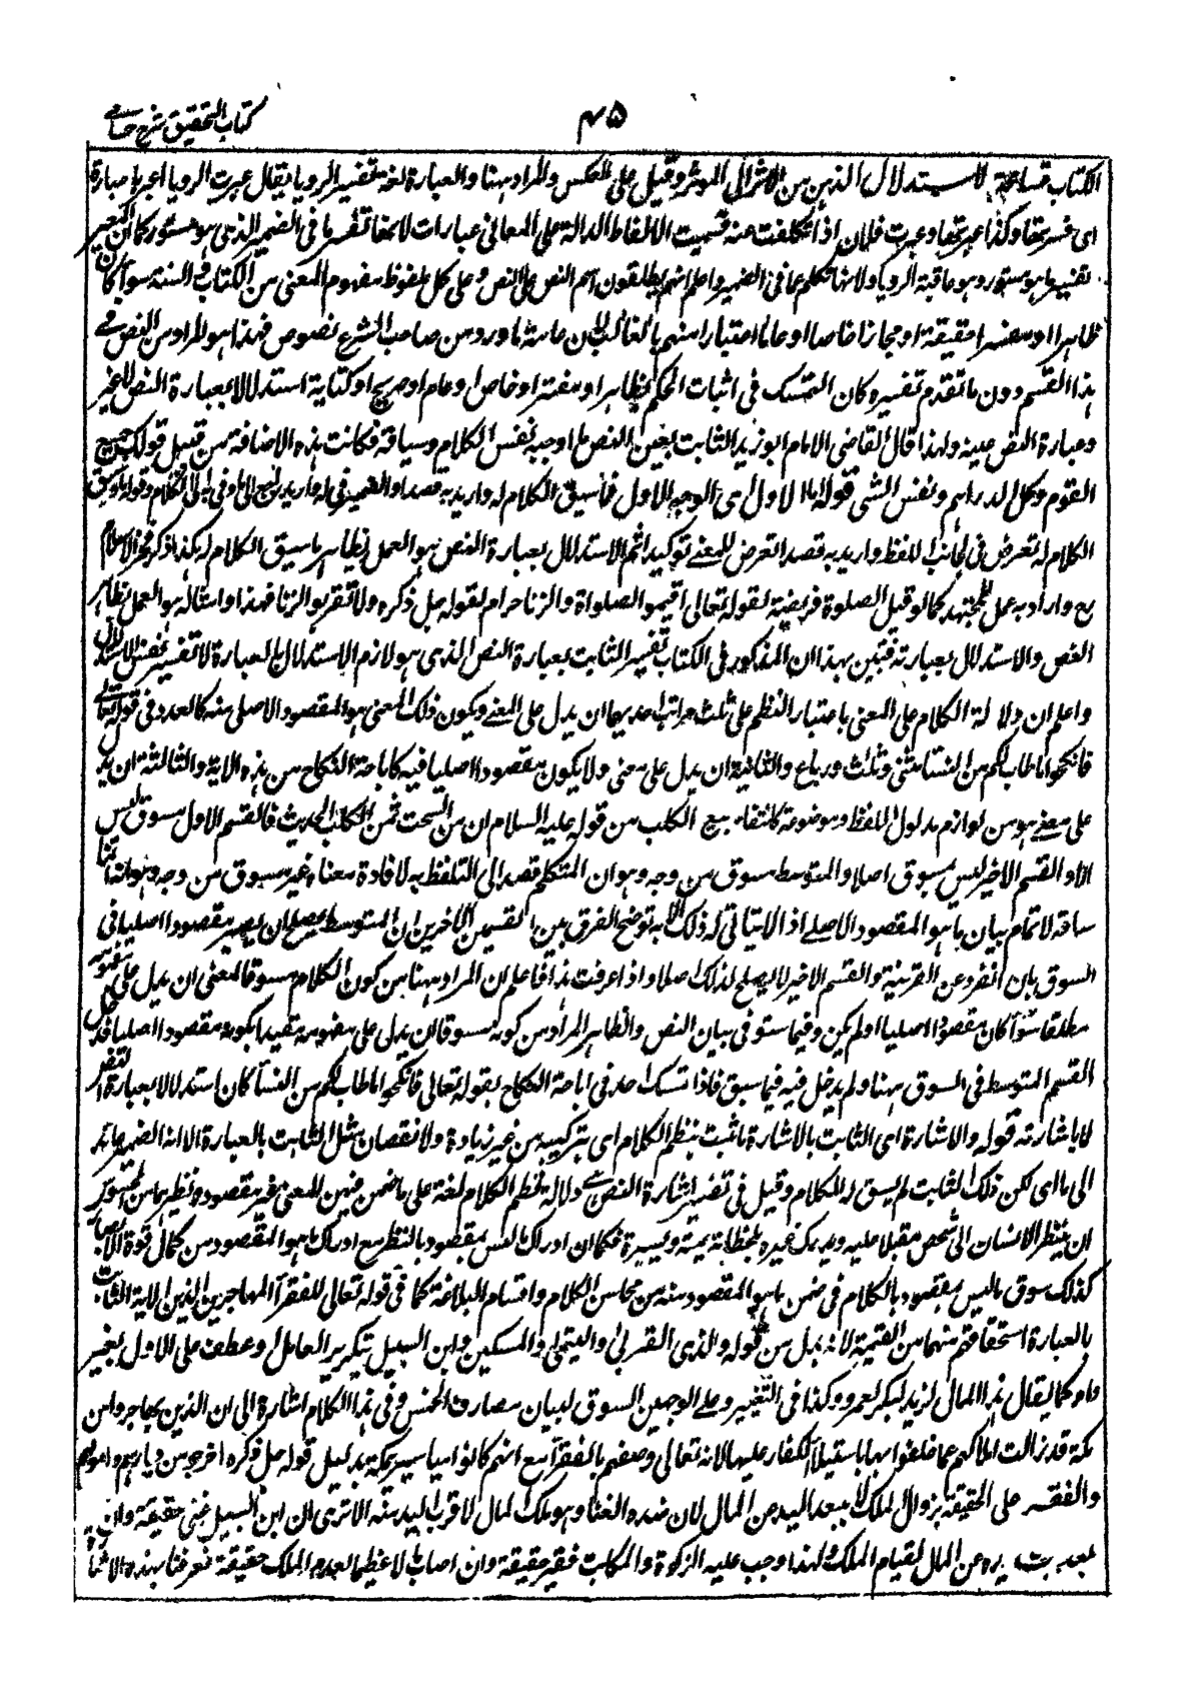 كتاب التحقيق شرح حسامى
٤٥
الكتاب تسامحا الاستدلال انتقال الذهن من الاثر الى المؤثر وقيل على العكس والمراد ههنا والعبارة لغة تفسير الرويا يقال عبرت الرويا اعبرها عبارة
اى فسرتها وكذا عبرتها وعبرت عن فلان اذا تكلمت عنه فسميت الالفاظ الدالة على المعانى عبارات لانها تفسر ما فى الضمير الذى هو مستور كما ان المعبر
تفسير ما هو مستور وهو عاقبة الرويا ولانها تكلم عما فى الضمير واعلم انهم يطلقون اسم النص على كل ملفوظ مفهوم المعنى من الكتاب والسنة سواء كان
ظاهرا او مفسرا حقيقة او مجازا خاصا او عاما اعتبارا منهم بالغالب لان عامة ما ورد من صاحب الشرع نصوص فهذا هو المراد من النص فى
هذا القسم دون ما تقدم تفسيره كان التمسك فى اثبات الحكم بظاهر او مفسر او خاص او عام او صريح او كناية استدلالا بعبارة النص لا غير
وعبارة النص عينه ولهذا قال القاضى الامام ابو زيد الثابت بعين النص ما اوجبه نفس الكلام وسياقه فكانت هذه الاضافة من قبيل قولك جميع
القوم وكل الدراهم ونفس الشئ قوله اما الاول اى الوجه الاول فما سيق الكلام له واريد به قصدا والضمير فى له
الكلام له تعرض فى جانب اللفظ واريد به قصدا تعرض للمعنى توكيدا ثم الاستدلال بعبارة النص هو العمل بظاهر ما سيق الكلام له هكذا ذكر فخر الاسلام
رح واراد به عمل المجتهد كما لو قيل الصلوة فريضة لقوله تعالى اقيموا الصلواة والزنا حرام لقوله جل ذكره ولا تقربوا الزنا فهذا وامثاله هو العمل بظاهر
النص والاستدلال بعبارته فتبين بهذا ان المذكور فى الكتاب تفسير الثابت بعبارة النص الذى هو لازم الاستدلال بالعبارة لا تفسير نفس الاستدلال
واعلم ان دلالة الكلام على المعنى باعتبار النظم على ثلث مراتب احديها ان يدل على المعنى ويكون ذلك المعنى هو المقصود الاصلى منه كالعدد فى قوله تعالى
فانكحوا ما طاب لكم من النساء مثنى وثلث ورباع والثانية ان يدل على معنى ولا يكون مقصودا اصليا فيه كاباحة النكاح من هذه الاية والثالثة ان يدل
على معنى هو من لوازم مدلول اللفظ وموضوعه كانعقاد بيع الكلب من قوله عليه السلام ان من السحت ثمن الكلب الحديث فالقسم الاول مسوق ليس
الا والقسم الاخير ليس بمسوق اصلا والمتوسط مسوق من وجه وهو ان المتكلم قصد الى التلفظ به لافادة معناه غير مسوق من وجه وهو انه انما
ساقه لاتمام بيان ما هو المقصود الاصلى اذ لا يتاتى له ذلك الا به توضح الفرق بين القسمين الاخيرين ان المتوسط يصلح ان يصير مقصودا اصليا فى
السوق بان انفرد عن القرينة والقسم الاخير لا يصلح لذلك اصلا واذا عرفت هذا فاعلم ان المراد ههنا من كون الكلام مسوقا لمعنى ان يدل على مفهومه
مطلقا سواء كان مقصودا اصليا او لم يكن وفيما سبق فى بيان النص والظاهر المراد من كونه مسوقا ان يدل على مفهومه مقيدا بكونه مقصودا اصليا فدخل
القسم المتوسط فى السوق ههنا ولم يدخل فيه فيما سبق فاذا تمسك احد فى اباحة النكاح بقوله تعالى فانكحوا ما طاب لكم من النساء كان استدلالا بعبارة النص
لا باشارته قوله والاشارة اى الثابت بالاشارة ما ثبت بنظم الكلام اى بتركيبه من غير زيادة ولا نقصان مثل الثابت بالعبارة الا انه الضمير عائد
الى ما اى لكن ذلك الثابت لم يسق له الكلام وقيل فى تفسير اشارة النص هى دلالة نظم الكلام لغة على ما ضمن فيه من المعنى غير مقصود ونظيرها من المحسوس
ان ينظر الانسان الى شخص مقبلا عليه ويدرك غيره بلحظاته يمنة ويسرة فكما ان ادراك ما ليس بمقصود بالنظر مع ادراك ما هو المقصود من كمال قوة الابصار
كذلك سوق ما ليس بمقصود بالكلام فى ضمن ما هو المقصود منه من محاسن الكلام واقسام البلاغة كما فى قوله تعالى للفقراء المهاجرين الذين الاية الثابت
بالعبارة استحقاقهم سهما من الغنيمة لانه بدل من قوله ولذى القربى واليتمى والمسكين وابن السبيل بتكرير العامل او عطف على الاول بغير
واو كما يقال هذا المال لزيد لبكر لعمرو وكذا فى التفسير وعلى الوجهين السوق لبيان مصارف الخمس وفى هذا الكلام اشارة الى ان الذين هاجروا من
مكة قد زالت املاكهم عما خلفوا بها باستيلاء الكفار عليها لانه تعالى وصفهم بالفقراء مع انهم كانوا مياسير بمكة بدليل قوله جل ذكره اخرجوا من ديارهم واموالهم
والفقر على الحقيقة بزوال الملك لا ببعد اليد عن المال لان ضده الغناء وهو ملك المال لا قرب اليد منه الا ترى ان ابن السبيل غنى حقيقة وان
بعدت يده عن المال لقيام الملك ولهذا وجب عليه الزكوة والمكاتب فقير حقيقة وان اصاب مالا عظيما لعدم الملك حقيقة فعرفنا بهذه الاشارة